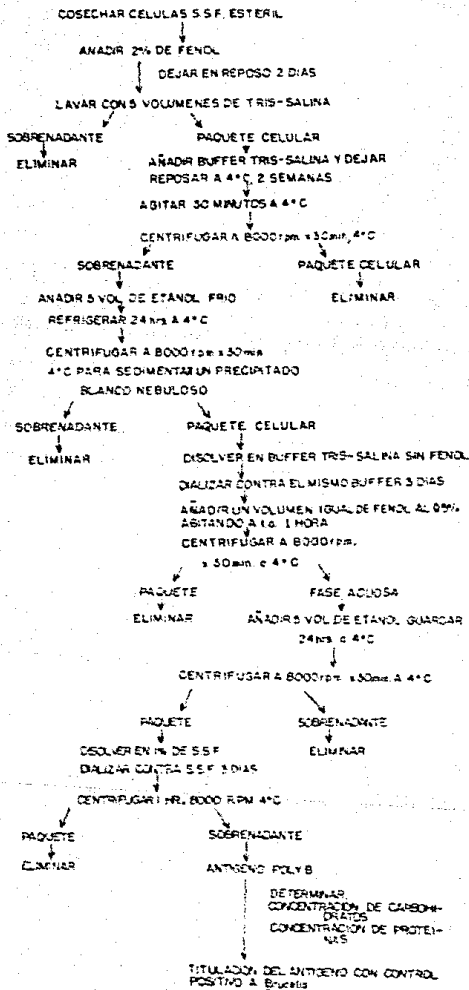 COSECHAR CELULAS S.S.F. ESTERIL
AÑADIR 2% DE FENOL
DEJAR EN REPOSO 2 DIAS
LAVAR CON 5 VOLUMENES DE TRIS-SALINA
SOBRENADANTE PAQUETE CELULAR
ELIMINAR AÑADIR BUFFER TRIS-SALINA Y DEJAR
REPOSAR A 4°C, 2 SEMANAS
AGITAR 30 MINUTOS A 4°C
CENTRIFUGAR A 8000 rpm x 30min, 4°C
SOBRENADANTE PAQUETE CELULAR
AÑADIR 5 VOL DE ETANOL FRIO ELIMINAR
REFRIGERAR 24 hrs A 4°C
CENTRIFUGAR A 8000 rpm x 30 min
4°C PARA SEDIMENTAR UN PRECIPITADO
BLANCO NEBULOSO
SOBRENADANTE PAQUETE CELULAR
ELIMINAR DISOLVER EN BUFFER TRIS-SALINA SIN FENOL
DIALIZAR CONTRA EL MISMO BUFFER 3 DIAS
AÑADIR UN VOLUMEN IGUAL DE FENOL AL
AGITANDO A t.a. 1 HORA
CENTRIFUGAR A 8000 rpm.
x 30 min. a 4°C
PAQUETE FASE ACUOSA
ELIMINAR AÑADIR 5 VOL DE ETANOL GUARDAR
24 hrs a 4°C
CENTRIFUGAR A 8000 rpm x 30 min. A 4°C
PAQUETE SOBRENADANTE
DISOLVER EN 1% DE S.S.F. ELIMINAR
DIALIZAR CONTRA S.S.F. 3 DIAS
CENTRIFUGAR 1 HR., 8000 RPM 4°C
PAQUETE SOBRENADANTE
ELIMINAR ANTIGENO POLY B
DETERMINAR
CONCENTRACION DE CARBOHI-
DRATOS
CONCENTRACION DE PROTEI-
NAS
TITULACION DEL ANTIGENO CON CONTROL
POSITIVO A Brucella